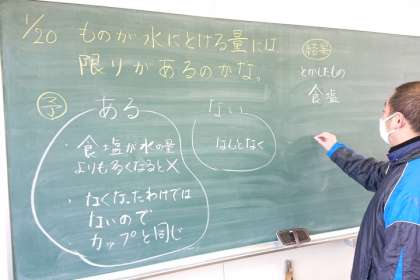 1/20 ものが水にとける量には
限りがあるのかな。
予
ある
・食塩が水の量
よりも多くなると×
・なくなったわけでは
ないので
カップと同じ
ない
なんとなく
結果
とかしたもの
食塩